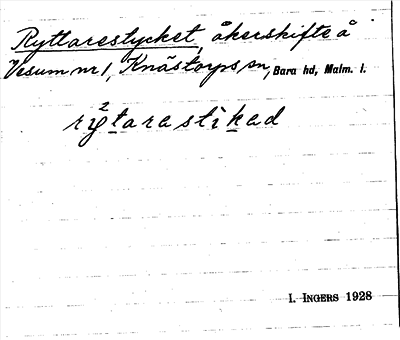 Ryttarestycket, åkerskifte å
Vesum nr 1, Knästorps sn, Bara hd, Malm. l.
rỳ²tarastìkad
I. INGERS 1928